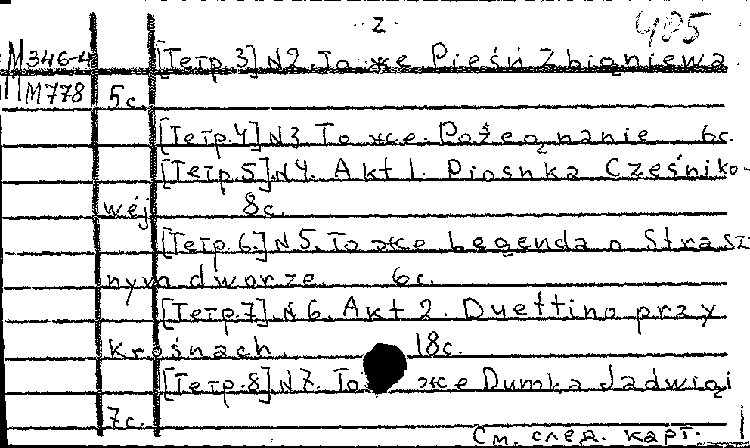 2. 405
М346-4 [Тетр.3] N2. То же Pieśń Zbigniewa
М778 5с.
[Тетр.4] N3 То же. Pożegnanie 6с.
[Тетр.5] N4. Akt 1. Piosnka Cześniko-
wej 8с.
[Тетр.6.] N5. То же Legenda o Strasz
nym dworze. 6с.
[Тетр.7] N6. Akt 2. Duettino przy
krośnach. 18с.
[Тетр.8] N7. То же Dumka Jadwigi
7с.
См. след. карт.